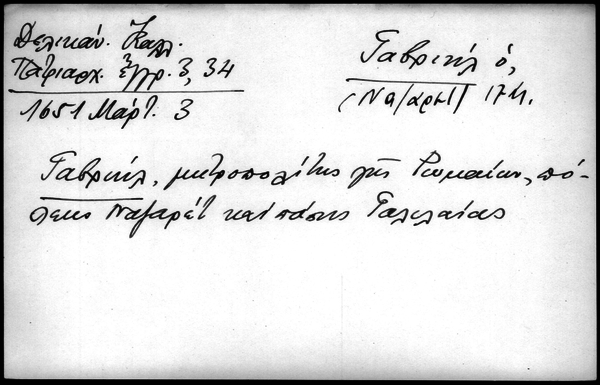 Δελικάν. Καλλ.
Πατριαρχ. ἔγγρ. 3, 34
1651 Μάρτ. 3
Γαβριήλ ὁ,
(Ναζαρέτ) 17
Γαβριήλ, μητροπολίτης τῆς Ρωμαίων πό-
λεως Ναζαρέτ καί πάσης Γαλιλαίας